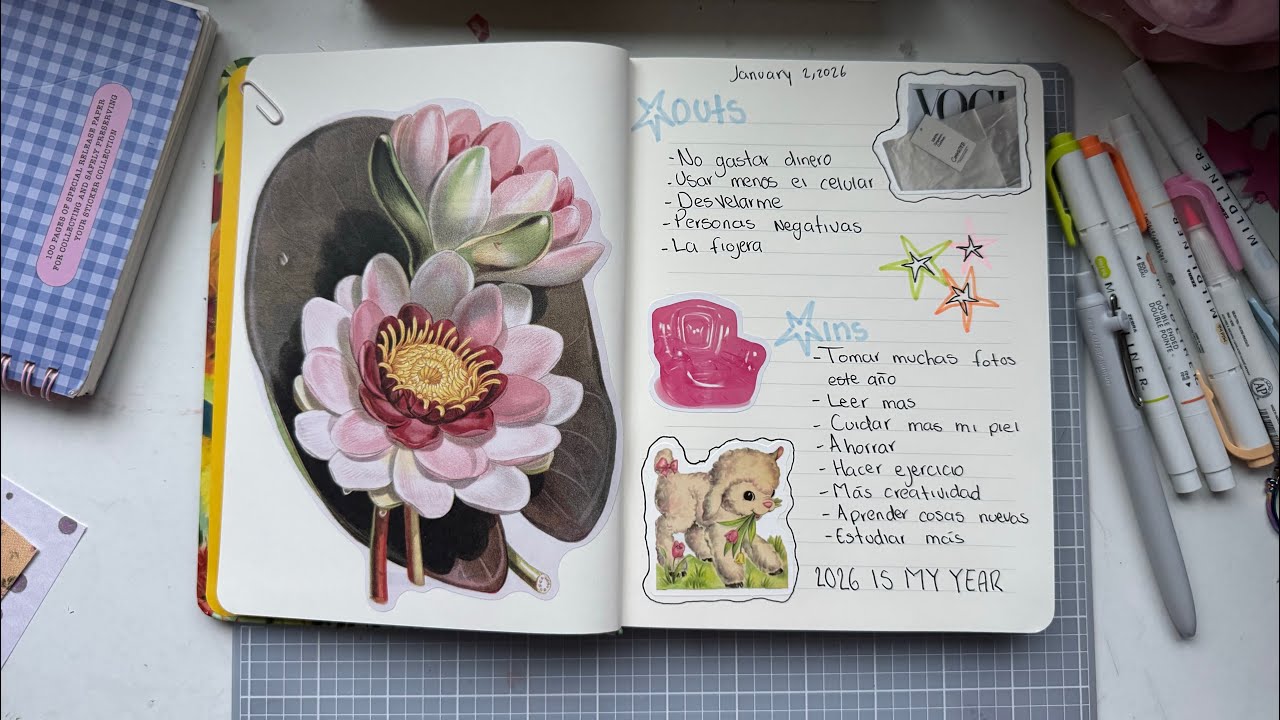 100 PAGES OF SPECIAL RELEASE PAPER
FOR COLLECTING AND SAFELY PRESERVING
YOUR STICKER COLLECTION
January 2, 2026
outs
- No gastar dinero
- Usar menos el celular
- Desvelarme
- Personas Negativas
- La flojera
ins
- Tomar muchas fotos
este año
- Leer mas
- Cuidar mas mi piel
- Ahorrar
- Hacer ejercicio
- Más creatividad
- Aprender cosas nuevas
- Estudiar más
2026 IS MY YEAR
MILDLINER